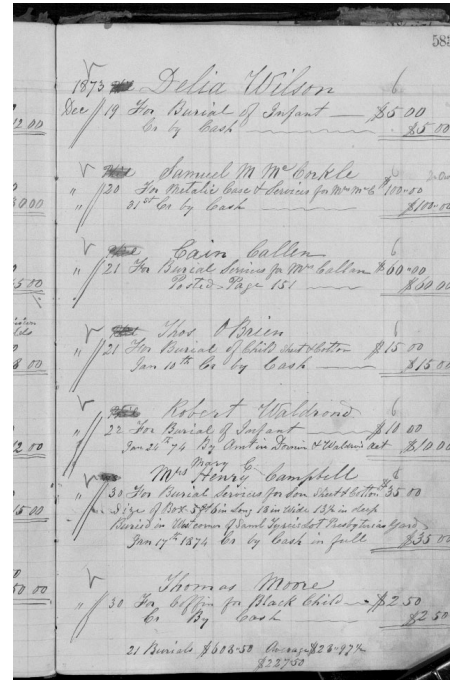 583
1873 Delia Wilson 6
Dec 19 For Burial of Infant $5 00
12 00 Cr by Cash $5 00
Samuel M McCorkle
" 20 For Metalic Case & Services for Mrs McC $100-00
31st Cr by Cash $100-00
Cain Callen 6
" 21 For Burial Services for Mrs Callen $60-00
5 00 Posted Page 151 $60 00
Thos O'Brien 6
" 21 For Burial of Child Shert & Cotton $15 00
8 00 Jan 10th Cr by Cash $15 00
Robert Waldrond 6
" 22 For Burial of Infant $10 00
12 00 Jan 24th 74 By Amt in Downin & Waldrons act $10 00
Mary C.
Mrs Henry Campbell
" 30 For Burial Services for Son Shert & Cotton $35 00
15 00 Size of Box 5 ft 6 in Long 18 in Wide 13½ in deep
Buried in West corner of Saml Lot Presbyterian Yard
Jan 17th 1874 Cr by Cash in full $35 00
Thomas Moore
" 30 For Coffin for Black Child $2 50
50 00 Cr By Cash $2 50
21 Burials $603-50 Average $28-97½
$227 50